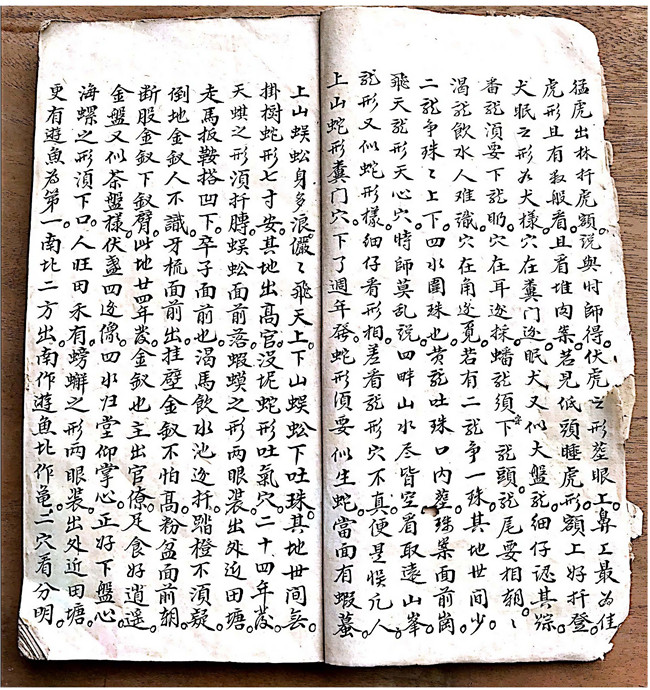 猛虎出林扦虎額。説與时師得伏虎之形葬眼上。鼻上最为佳
虎形且有数般看。且看堆肉案。若見低頭睡虎形。額上好扦登。
犬眠之形为犬樣。穴在糞门边。眠犬又似大盤龍。細仔認其踪
番龍湏要下龍腮。穴在耳边採。蟠龍須下龍頭。龍尾要相朝。
渴龍飲水人难識。穴在角边覓。若有二龍争一珠。其地世间少
二龍争珠〻上下。四水圍珠也。黄龍吐珠口内葬。珠案面前崗
飛天龍形天心穴。時師莫乱說。四畔山水尽皆空。看取遠山峯
龍形又似蛇形樣。細仔看形相。差看龍形穴不真。便是悞凢人。
上山蛇形糞门穴。下了週年發。蛇形湏要似生蛇。當面有蝦蟇。
上山蜈蚣身多浪。儼〻飛天上。下山蜈蚣下吐珠。其地世间無。
掛樹蛇形七寸安。其地出高官。沒坭蛇形吐氣穴。二十四年發。
天螟之形湏扦膊。蜈蚣面前落。蝦蟆之形两眼裝。出外近田塘。
走馬扳鞍搭凹下。卒子面前也。渴馬飲水池边扦。踏橙不湏疑
倒地金釵人不識。牙梳面前出。挂壁金釵不怕高。粉盆面前朝。
断股金釵下釵臂。此地廿四年發。金釵也主出官僚。足食好逍遥
金盤又似茶盤樣。伏盞四边像。四水归堂仰掌心。正好下盤心。
海螺之形湏下口。人旺田禾有。螃蠏之形两眼裝。出外近田塘。
更有遊魚为第一。南北二方出。南作遊魚北作亀。二穴看分明。